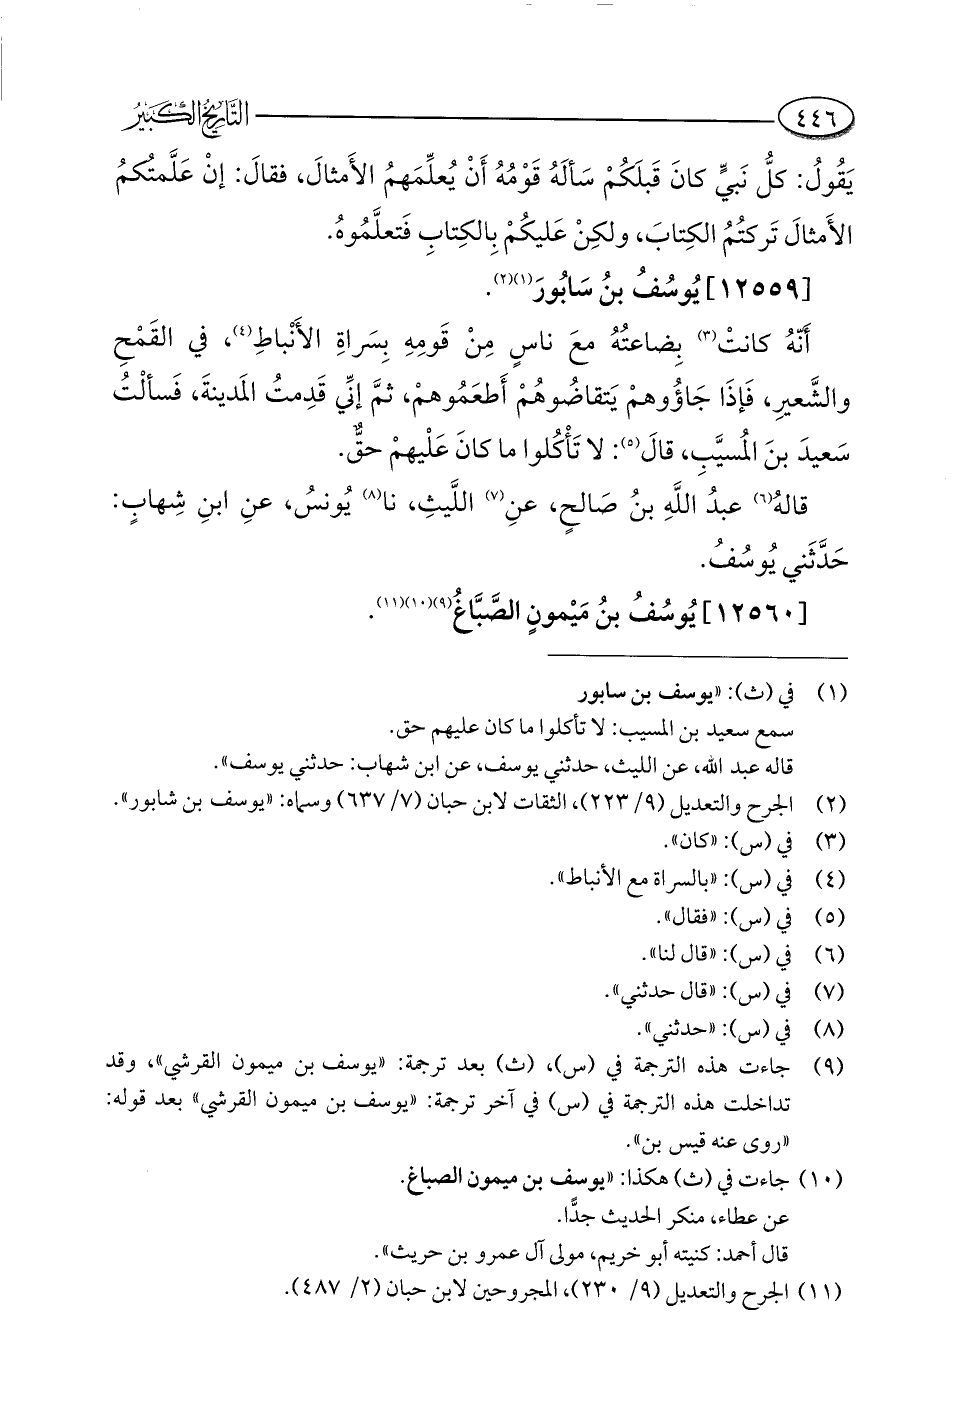 ٤٤٦ التاريخ الكبير
يَقُولُ: كلُّ نَبيٍّ كانَ قَبلَكُمْ سَألَهُ قَوْمُهُ أَنْ يُعلِّمَهمُ الأمثالَ، فقالَ: إنْ عَلَّمتُكمُ
الأمثالَ تَركتُمُ الكِتابَ، ولكِنْ عَليكُمْ بِالكِتابِ فَتعلَّمُوهُ.
[١٢٥٥٩] يُوسُفُ بنُ سَابُورَ(١)(٢).
أنّهُ كانتْ(٣) بِضاعتُهُ معَ ناسٍ مِنْ قَومِهِ بِسَراةِ الأنْباطِ(٤)، في القَمْحِ
والشَّعيرِ، فَإذَا جَاؤُوهمْ يَتقاضُوهُمْ أَطعَمُوهمْ، ثمَّ إنِّي قَدِمتُ المَدينةَ، فَسألْتُ
سَعيدَ بنَ المُسيَّبِ، قالَ(٥): لا تَأْكُلوا ما كانَ عَلَيهِمْ حقٌّ.
قالهُ(٦) عبدُ اللَّهِ بنُ صَالحٍ، عنِ(٧) اللَّيثِ، نا(٨) يُونسُ، عنِ ابنِ شِهابٍ:
حَدَّثَني يُوسُفُ.
[١٢٥٦٠] يُوسُفُ بنُ مَيْمونٍ الصَّبَّاغُ(٩)(١٠)(١١).
(١) في (ث): «يوسف بن سابور
سمع سعيد بن المسيب: لا تأكلوا ما كان عليهم حق.
قاله عبد الله، عن الليث، حدثني يوسف، عن ابن شهاب: حدثني يوسف».
(٢) الجرح والتعديل (٩/ ٢٢٣)، الثقات لابن حبان (٧/ ٦٣٧) وسماه: «يوسف بن شابور».
(٣) في (س): «كان».
(٤) في (س): «بالسراة مع الأنباط».
(٥) في (س): «فقال».
(٦) في (س): «قال لنا».
(٧) في (س): «قال حدثني».
(٨) في (س): «حدثني».
(٩) جاءت هذه الترجمة في (س)، (ث) بعد ترجمة: «يوسف بن ميمون القرشي»، وقد
تداخلت هذه الترجمة في (س) في آخر ترجمة: «يوسف بن ميمون القرشي» بعد قوله:
«روى عنه قيس بن».
(١٠) جاءت في (ث) هكذا: «يوسف بن ميمون الصباغ.
عن عطاء، منكر الحديث جدًّا.
قال أحمد: كنيته أبو خريم، مولى آل عمرو بن حريث».
(١١) الجرح والتعديل (٩/ ٢٣٠)، المجروحين لابن حبان (٢/ ٤٨٧).